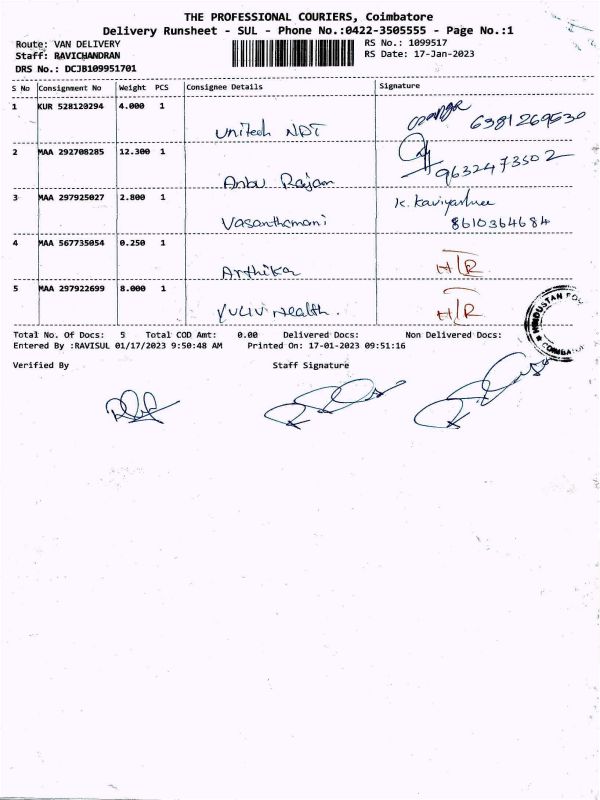 THE PROFESSIONAL COURIERS, Coimbatore
Delivery Runsheet - SUL - Phone No.:0422-3505555 - Page No.:1
Route: VAN DELIVERY RS No.: 1099517
Staff: RAVICHANDRAN RS Date: 17-Jan-2023
DRS No.: DCJB109951701
S No Consignment No Weight PCS Consignee Details Signature
1 KUR 528120294 4.000 1 Unitech NDT 6381269630
2 MAA 292708285 12.300 1 Anbu Rajam 9632473502
3 MAA 297925027 2.800 1 Vasanthamani K. Kaviyashree 8610364684
4 MAA 567735054 0.250 1 Arthika H/R
5 MAA 297922699 8.000 1 VULIV Health. H/R
Total No. Of Docs: 5 Total COD Amt: 0.00 Delivered Docs: Non Delivered Docs:
Entered By :RAVISUL 01/17/2023 9:50:48 AM Printed On: 17-01-2023 09:51:16
Verified By Staff Signature
HINDUSTAN